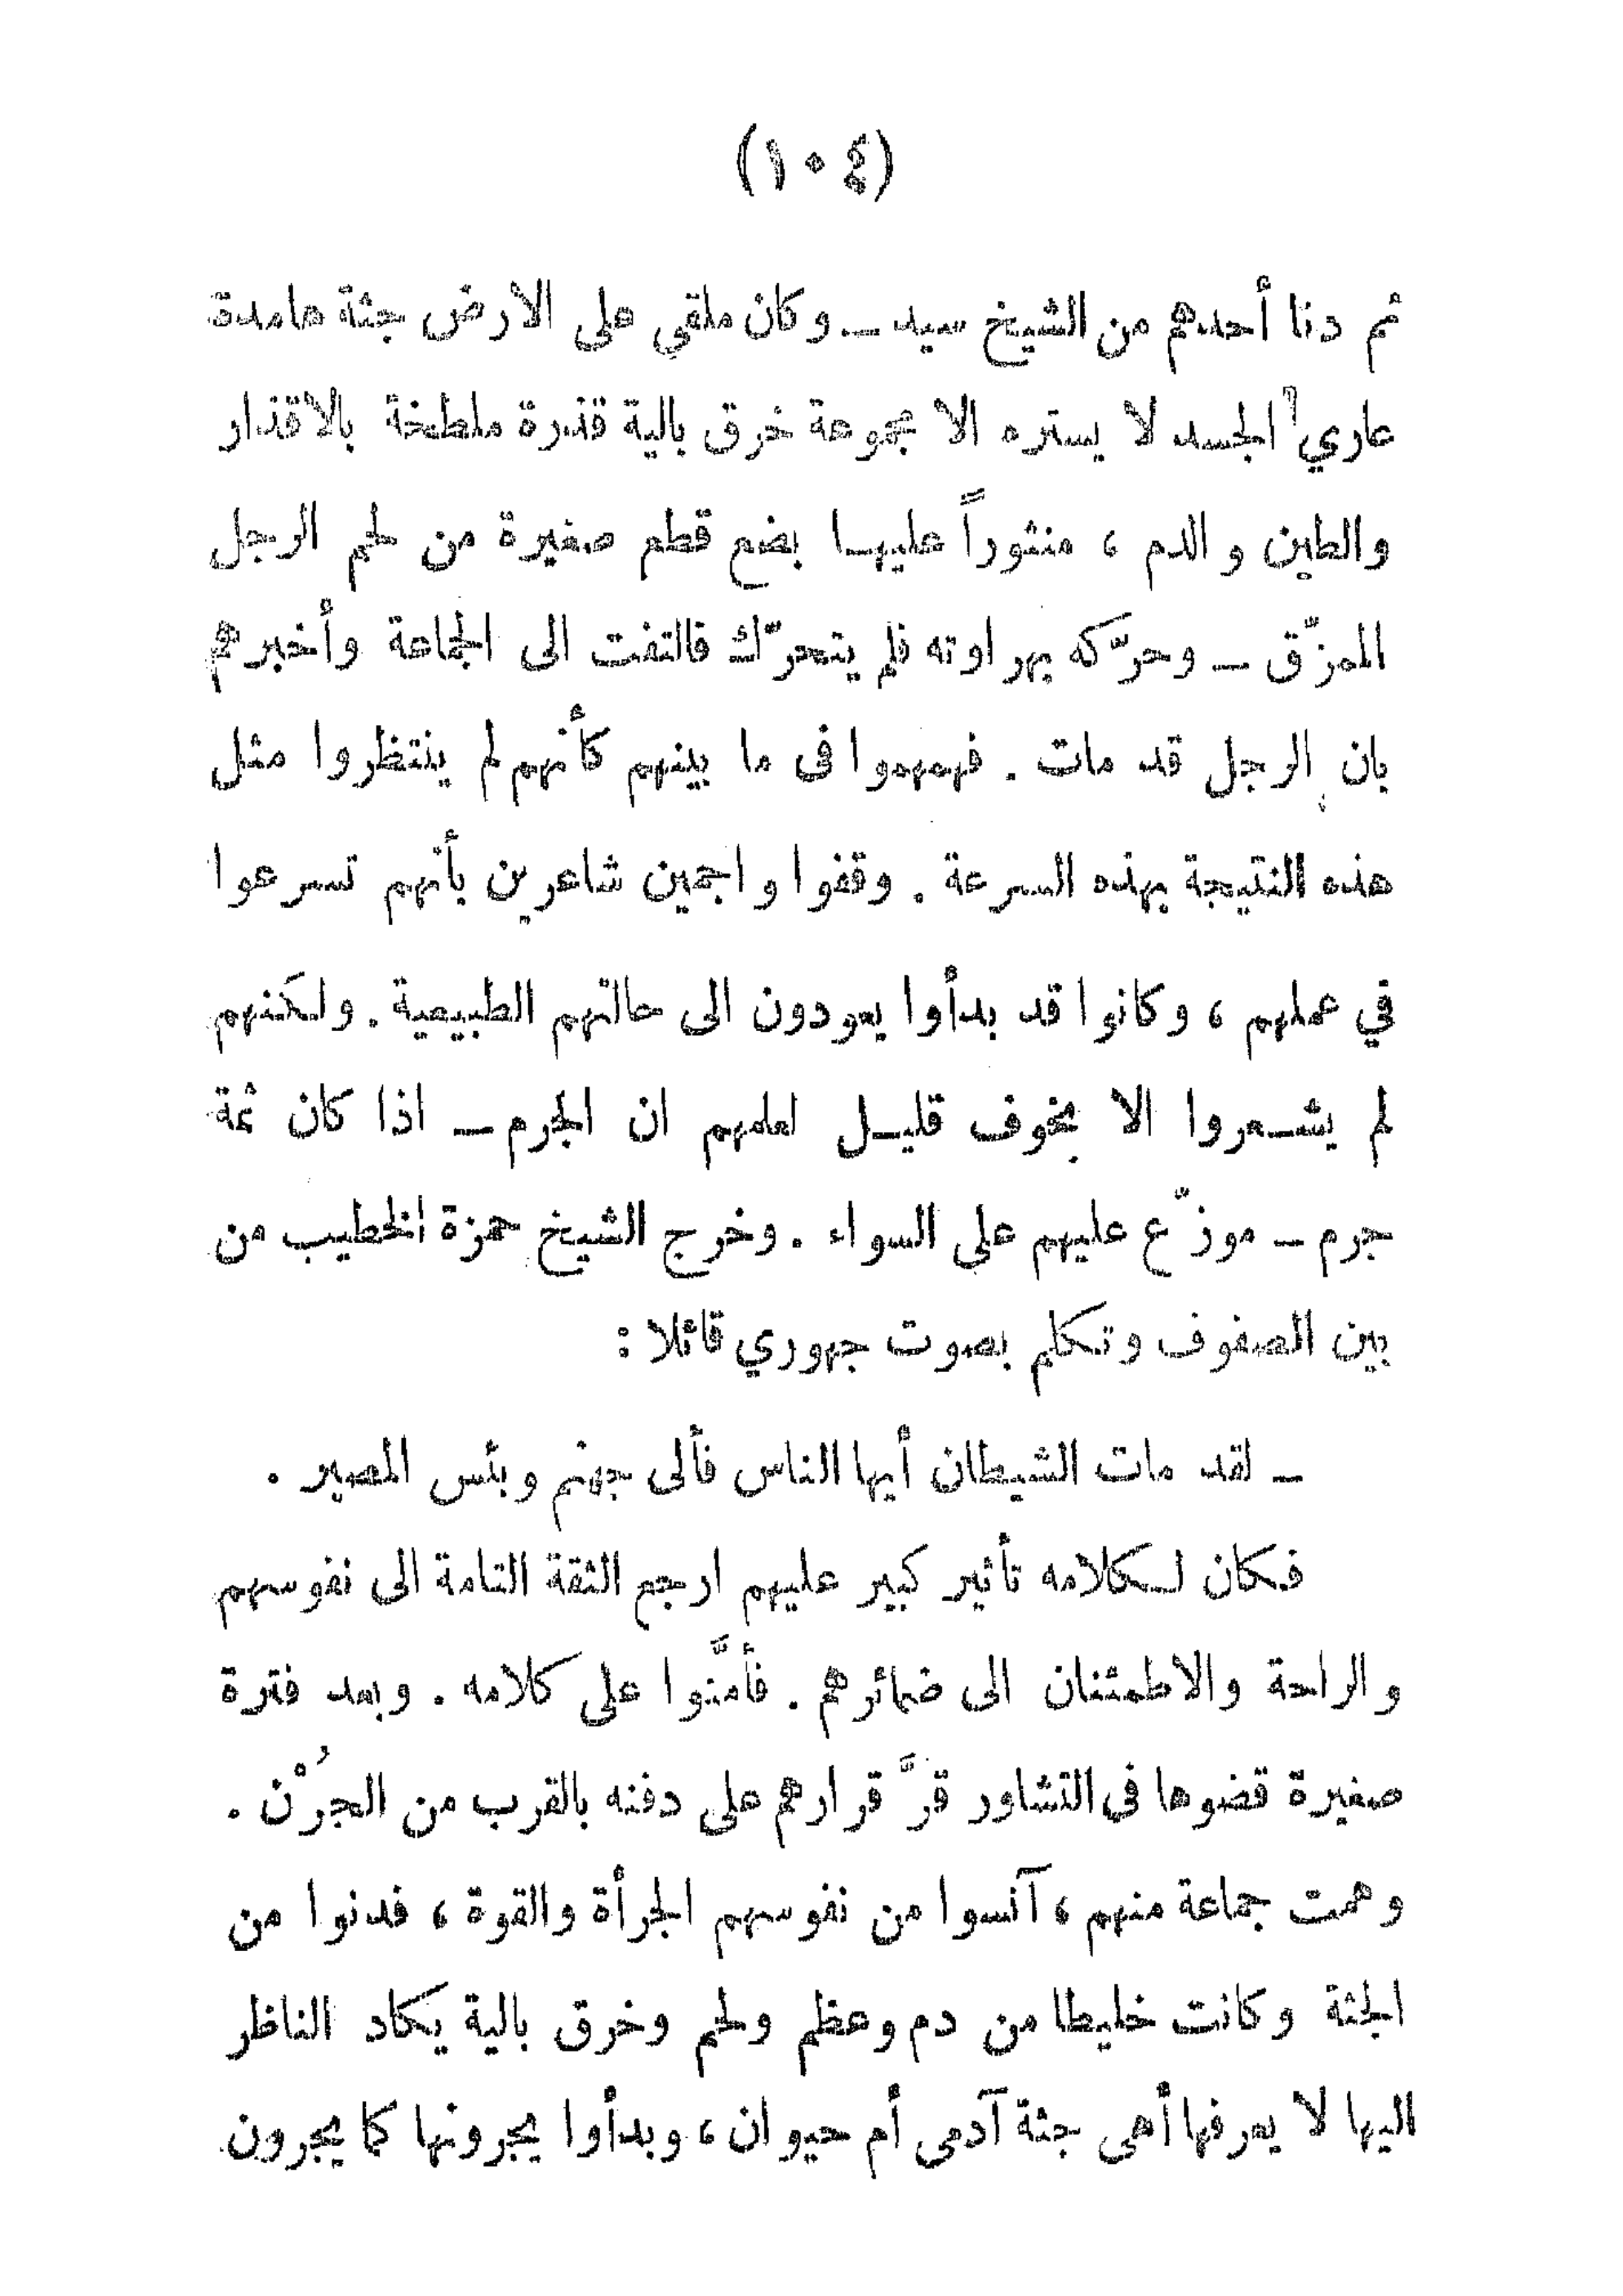 (١٠٤)
ثم دنا أحدهم من الشيخ سيد ــ وكان ملقي على الارض جثة هامدة
عاري الجسد لا يستره الا مجموعة خرق بالية قذرة ملطخة بالاقذار
والطين والدم ، منثوراً عليها بضع قطع صغيرة من لحم الرجل
الممزّق ــ وحرّكه بهراوته فلم يتحرّك فالتفت الى الجماعة وأخبرهم
بان الرجل قد مات . فهمهموا فى ما بينهم كأنهم لم ينتظروا مثل
هذه النتيجة بهذه السرعة . وقفوا واجمين شاعرين بأنهم تسرعوا
في عملهم ، وكانوا قد بدأوا يعودون الى حالتهم الطبيعية . ولكنهم
لم يشعروا الا بخوف قليل لعلمهم ان الجرم ــ اذا كان ثمة
جرم ــ موزّع عليهم على السواء . وخرج الشيخ حمزة الخطيب من
بين الصفوف وتكلم بصوت جهوري قائلا :
ــ لقد مات الشيطان أيها الناس فألى جهنم وبئس المصير .
فكان لكلامه تأثير كبير عليهم ارجع الثقة التامة الى نفوسهم
والراحة والاطمئنان الى ضمائرهم . فأمَّنوا على كلامه . وبعد فترة
صغيرة قضوها فى التشاور قرَّ قرارهم على دفنه بالقرب من الجُرْن .
وهمت جماعة منهم ، آنسوا من نفوسهم الجرأة والقوة ، فدنوا من
الجثة وكانت خليطا من دم وعظم ولحم وخرق بالية يكاد الناظر
اليها لا يعرفها أهى جثة آدمى أم حيوان ، وبدأوا يجرونها كما يجرون